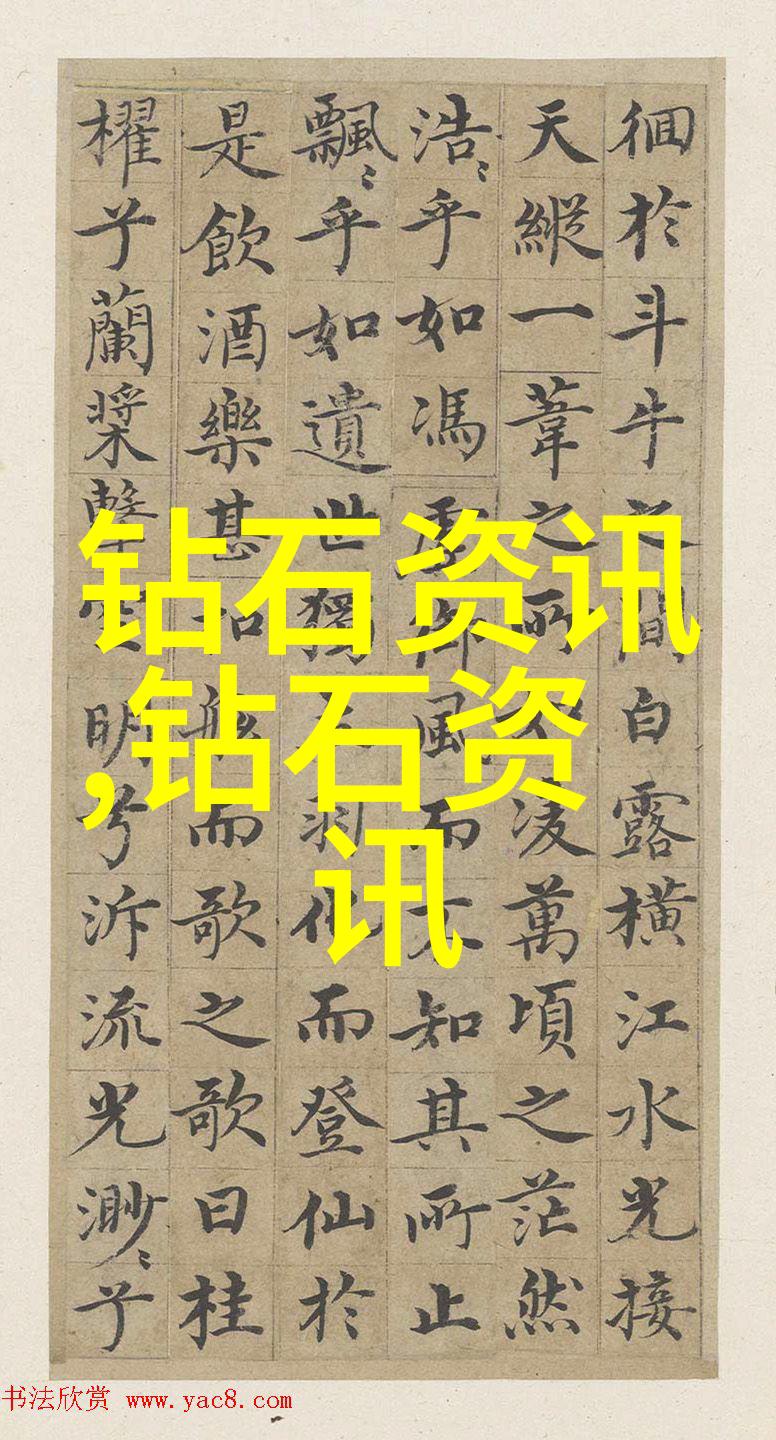 徊於斗牛之間白露橫江水光接
天縱一葦之所如凌萬頃之茫然
浩〻乎如馮虛御風而不知其所止
飄〻乎如遺世獨立羽化而登仙於
是飲酒樂甚扣舷而歌之歌曰桂
櫂兮蘭槳擊空明兮泝流光渺〻兮
钻石资讯
,钻石资
讯
书法欣赏 www.yac8.com